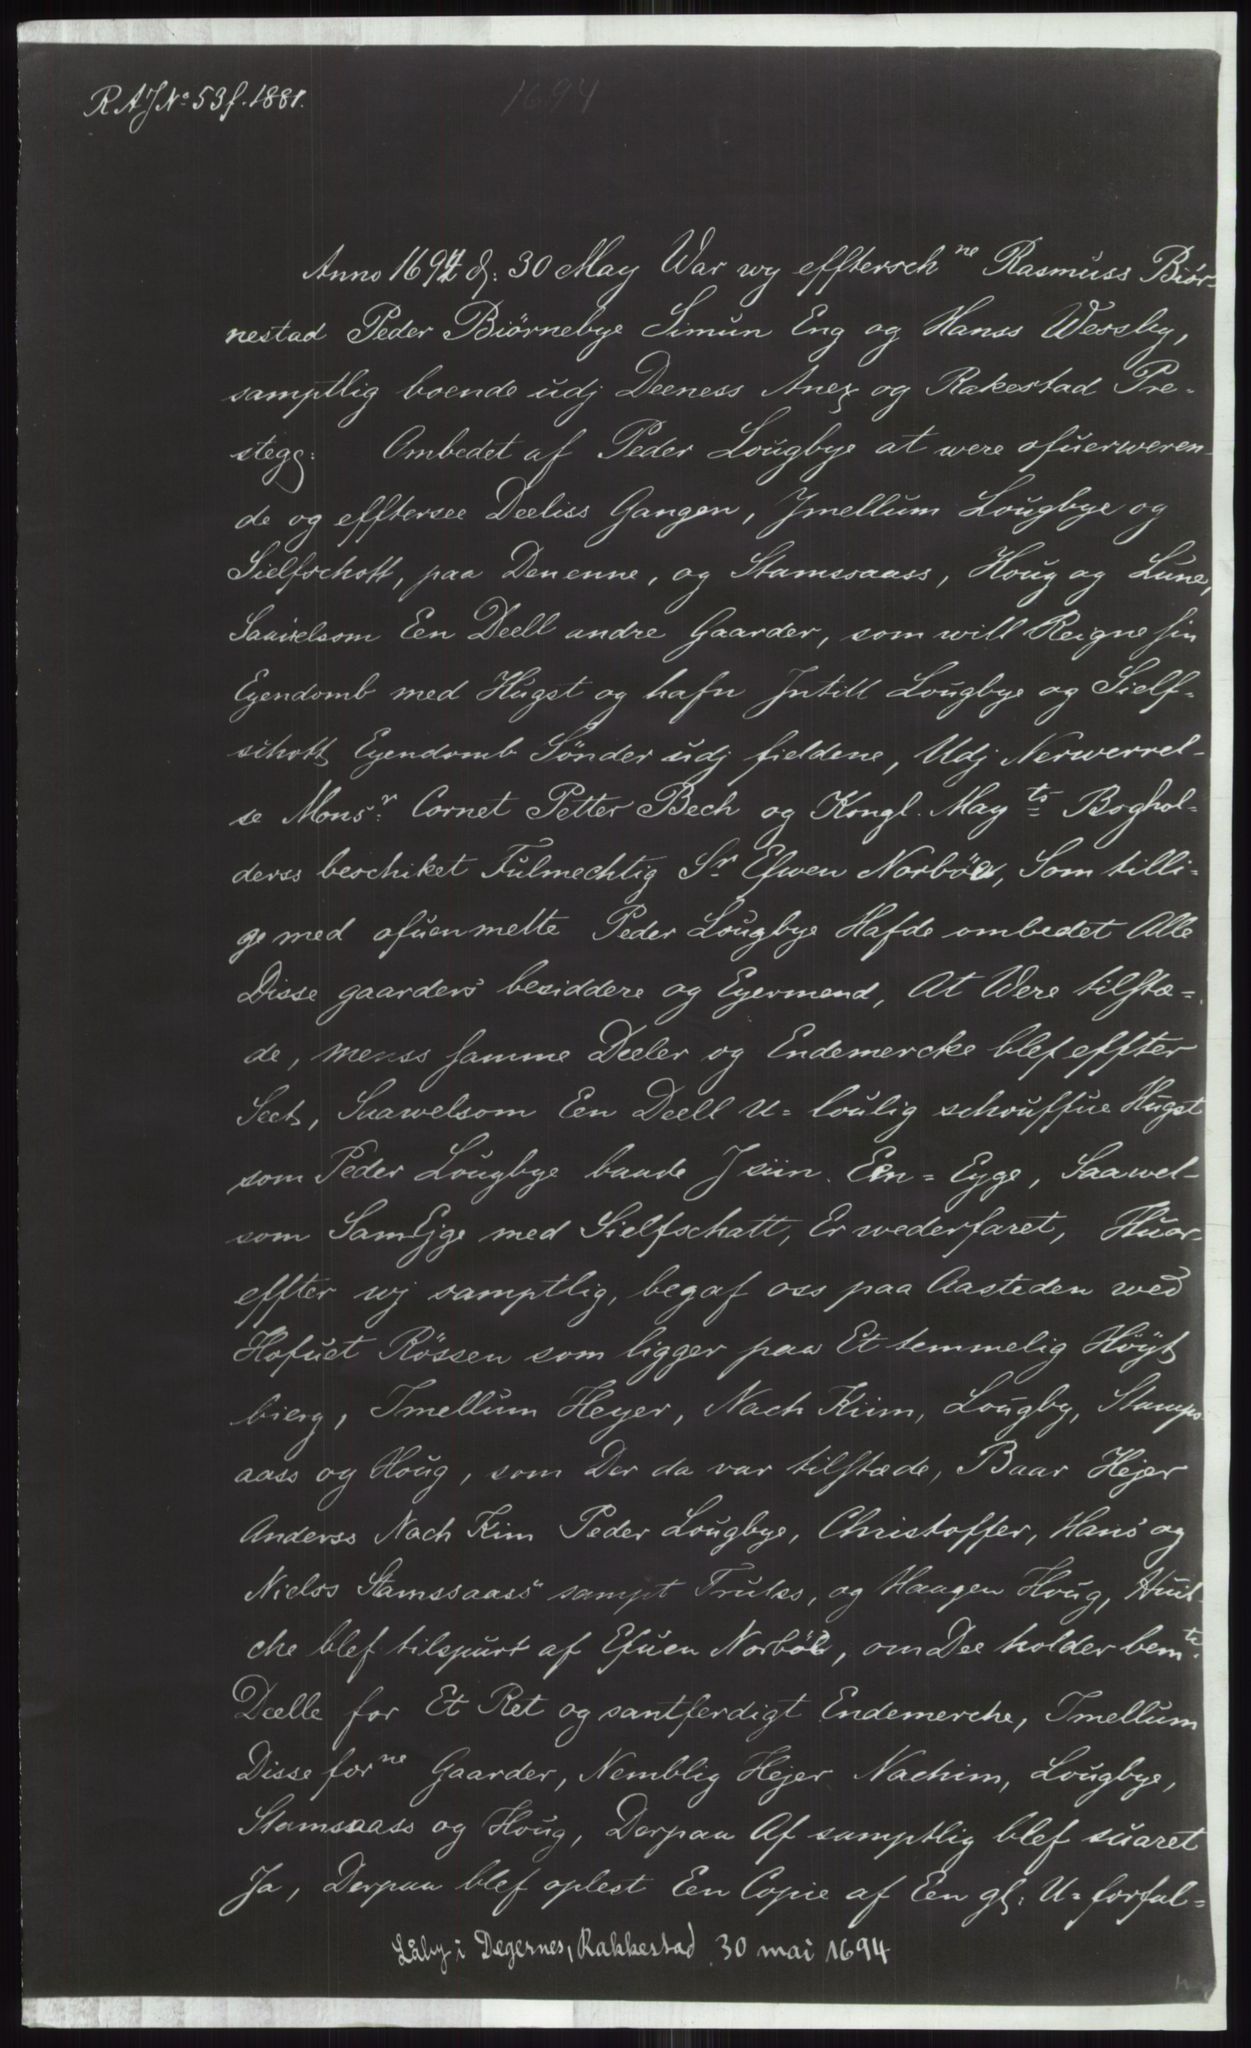 R A J No 53 f. 1881.
1694
Anno 1694 d: 30 May War wy efftersch ne Rasmuss Biör-
nestad Peder Biörnebye Simun Eng og Hanss Wessby,
samptlig boende udj Deeness Anex og Rakestad Pre-
steg: Ombedet af Peder Lougbye at were ofuerweren-
de og efftersee Deeliss Gangen, Jmellum Lougbye og
Sielfschott, paa Denenne, og Stamssaass, Houg og Lune,
Saawelsom Een Deell andre Gaarder, som will Reigne sin
Eyendomb med Hugst og hafn Jntill Lougbye og Sielf-
schott Eyendomb Sönder udj fieldene, Udj Nerwerrel-
se Monsr: Cornet Petter Bech og Kongl. May ts Boghol-
derss beschiket Fulmechtig Sr Efwen Norböe, Som tilli-
ge med ofuenmelte Peder Lougbye Hafde ombedet Alle
Disse gaarders besiddere og Eyermend, At Were tilstæ-
de, menss samme Deeler og Endemercke blef effter
Seet, Saawelsom Een Deell U-loulig schouffue Hugst
som Peder Lougbye baade J siin Een-Eyge, Saawel-
som SamEjge med Sielfschatt, Er wederfaret, Huor-
effter wj samptlig, begaf oss paa Aasteden wed
Hofuet Rössen som ligger paa Et temmelig Höyt
bierg, Jmellum Heyer, Nach Kiim, Lougby, Stamps
aass og Houg, som Der da var tilstæde, Baar Hejer
Anderss Nach Kim Peder Lougbye, Christoffer, Hans og
Nielss Stamssaass sampt Trulss, og Haagen Houg, Huil-
che blef tilspurt af Efuen Norböe, om Dee holder bem te
Deelle for Et Ret og santferdigt Endemerche, Jmellum
Disse for ne Gaarder, Nemblig Hejer Nachim, Lougbye,
Stamsaass og Houg, Derpaa Af samptlig blef suaret
Ja, Derpaa blef oplest Een Copie af Een gl: U-forfal-
Låby i Degernes, Rakkestad 30 mai 1694